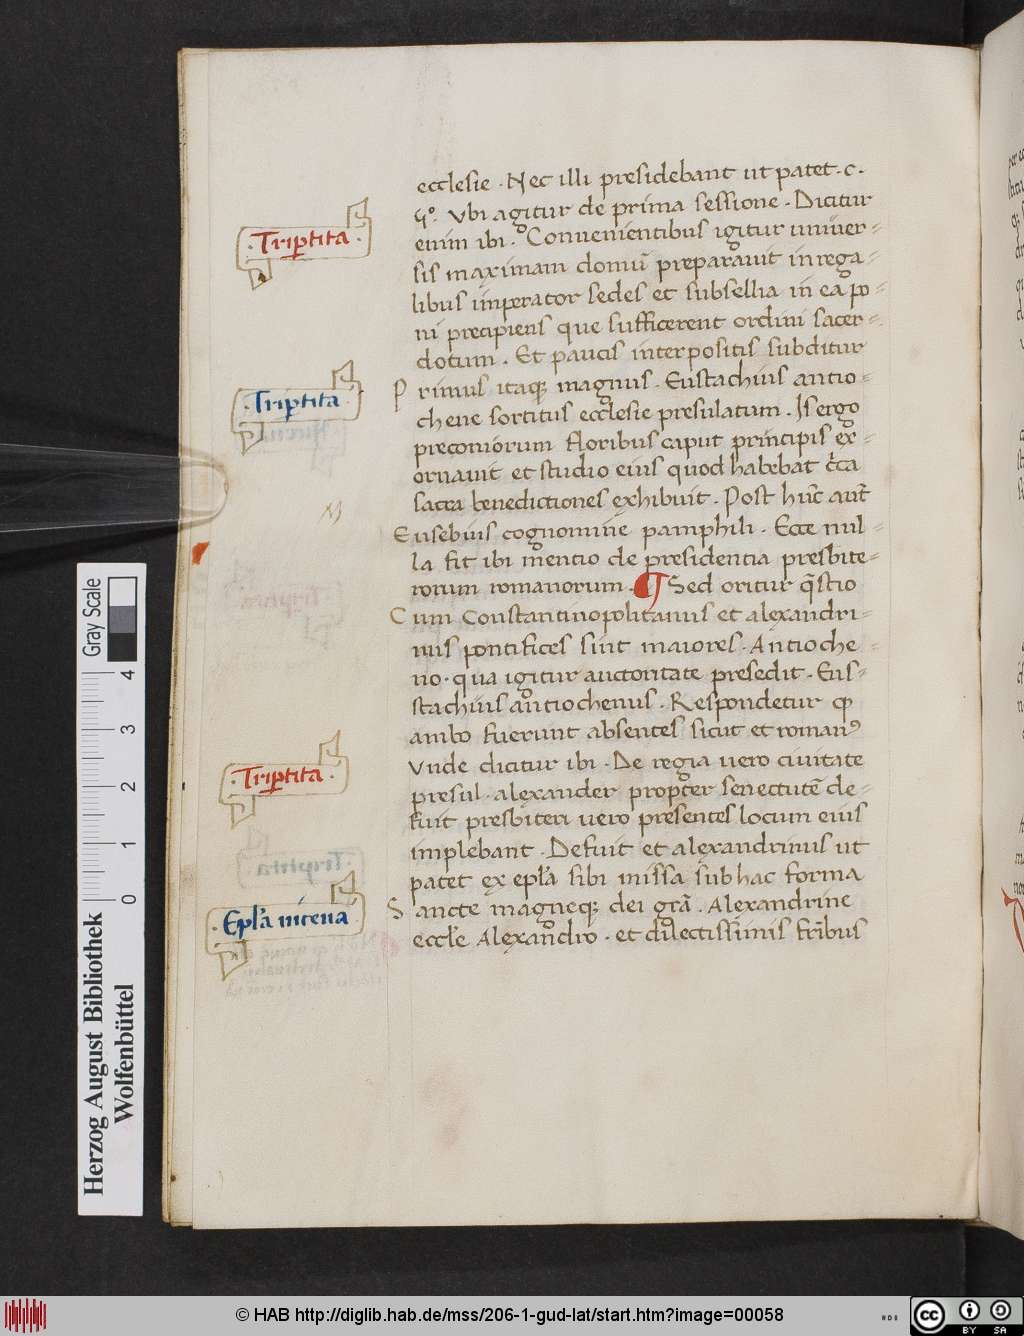 ecclesie · Nec illi presidebant ut patet · c ·
5º. Vbi agitur de prima sessione · Dicitur
enim ibi · Conuenientibus igitur uniuer=
sis maximam domū preparauit in rega=
libus imperator sedes et subsellia in ea po=
ni precipiens que sufficerent ordini sacer=
dotum · Et paucis interpositis subditur
Primus itaq; magnus · Eustachius antio=
chene sortitus ecclesie presulatum · Is ergo
preconiorum floribus caput principis ex=
ornauit et studio eius quod habebat c̄ca
sacra benedictiones exhibuit · Post hūc aūt
Eusebius cognomine pamphili · Ecce nul=
la fit ibi mentio de presidentia presbite=
rorum romanorum · ¶ Sed oritur q̄stio
Cum Constantinopolitanus et alexandri=
nus pontifices sint maiores · Antioche=
no · qua igitur auctoritate presedit · Eus=
stachius antiochenus · Respondetur ꝙ
ambo fuerunt absentes sicut et romanꝰ
Vnde dicitur ibi · De regia uero ciuitate
presul · alexander propter senectutē de=
fuit presbiteri uero presentes locum eius
implebant · Defuit et alexandrinus ut
patet ex epl̄a sibi missa sub hac forma
Sancte magneq; dei gr̄a · Alexandrine
eccl̄e Alexandro · et dilectissimis fr̄ibus
· Trip̲tita ·
· Trip̲tita ·
· Trip̲tita ·
· Epl̄a nicena
Gray Scale
4
3
2
1
0
Herzog August Bibliothek
Wolfenbüttel
© HAB http://diglib.hab.de/mss/206-1-gud-lat/start.htm?image=00058
cc BY SA